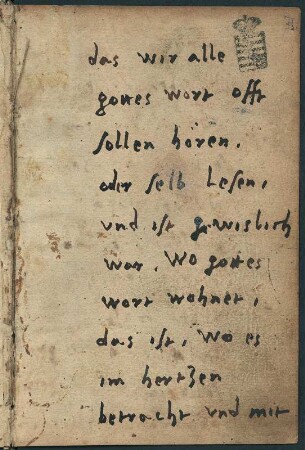 das wir alle
gottes wort offt
sollen hören,
oder selb lesen,
vnd ist gewislich
war, Wo gottes
wort wohnet,
das ist, wo es
im hertzen
betracht vnd mit